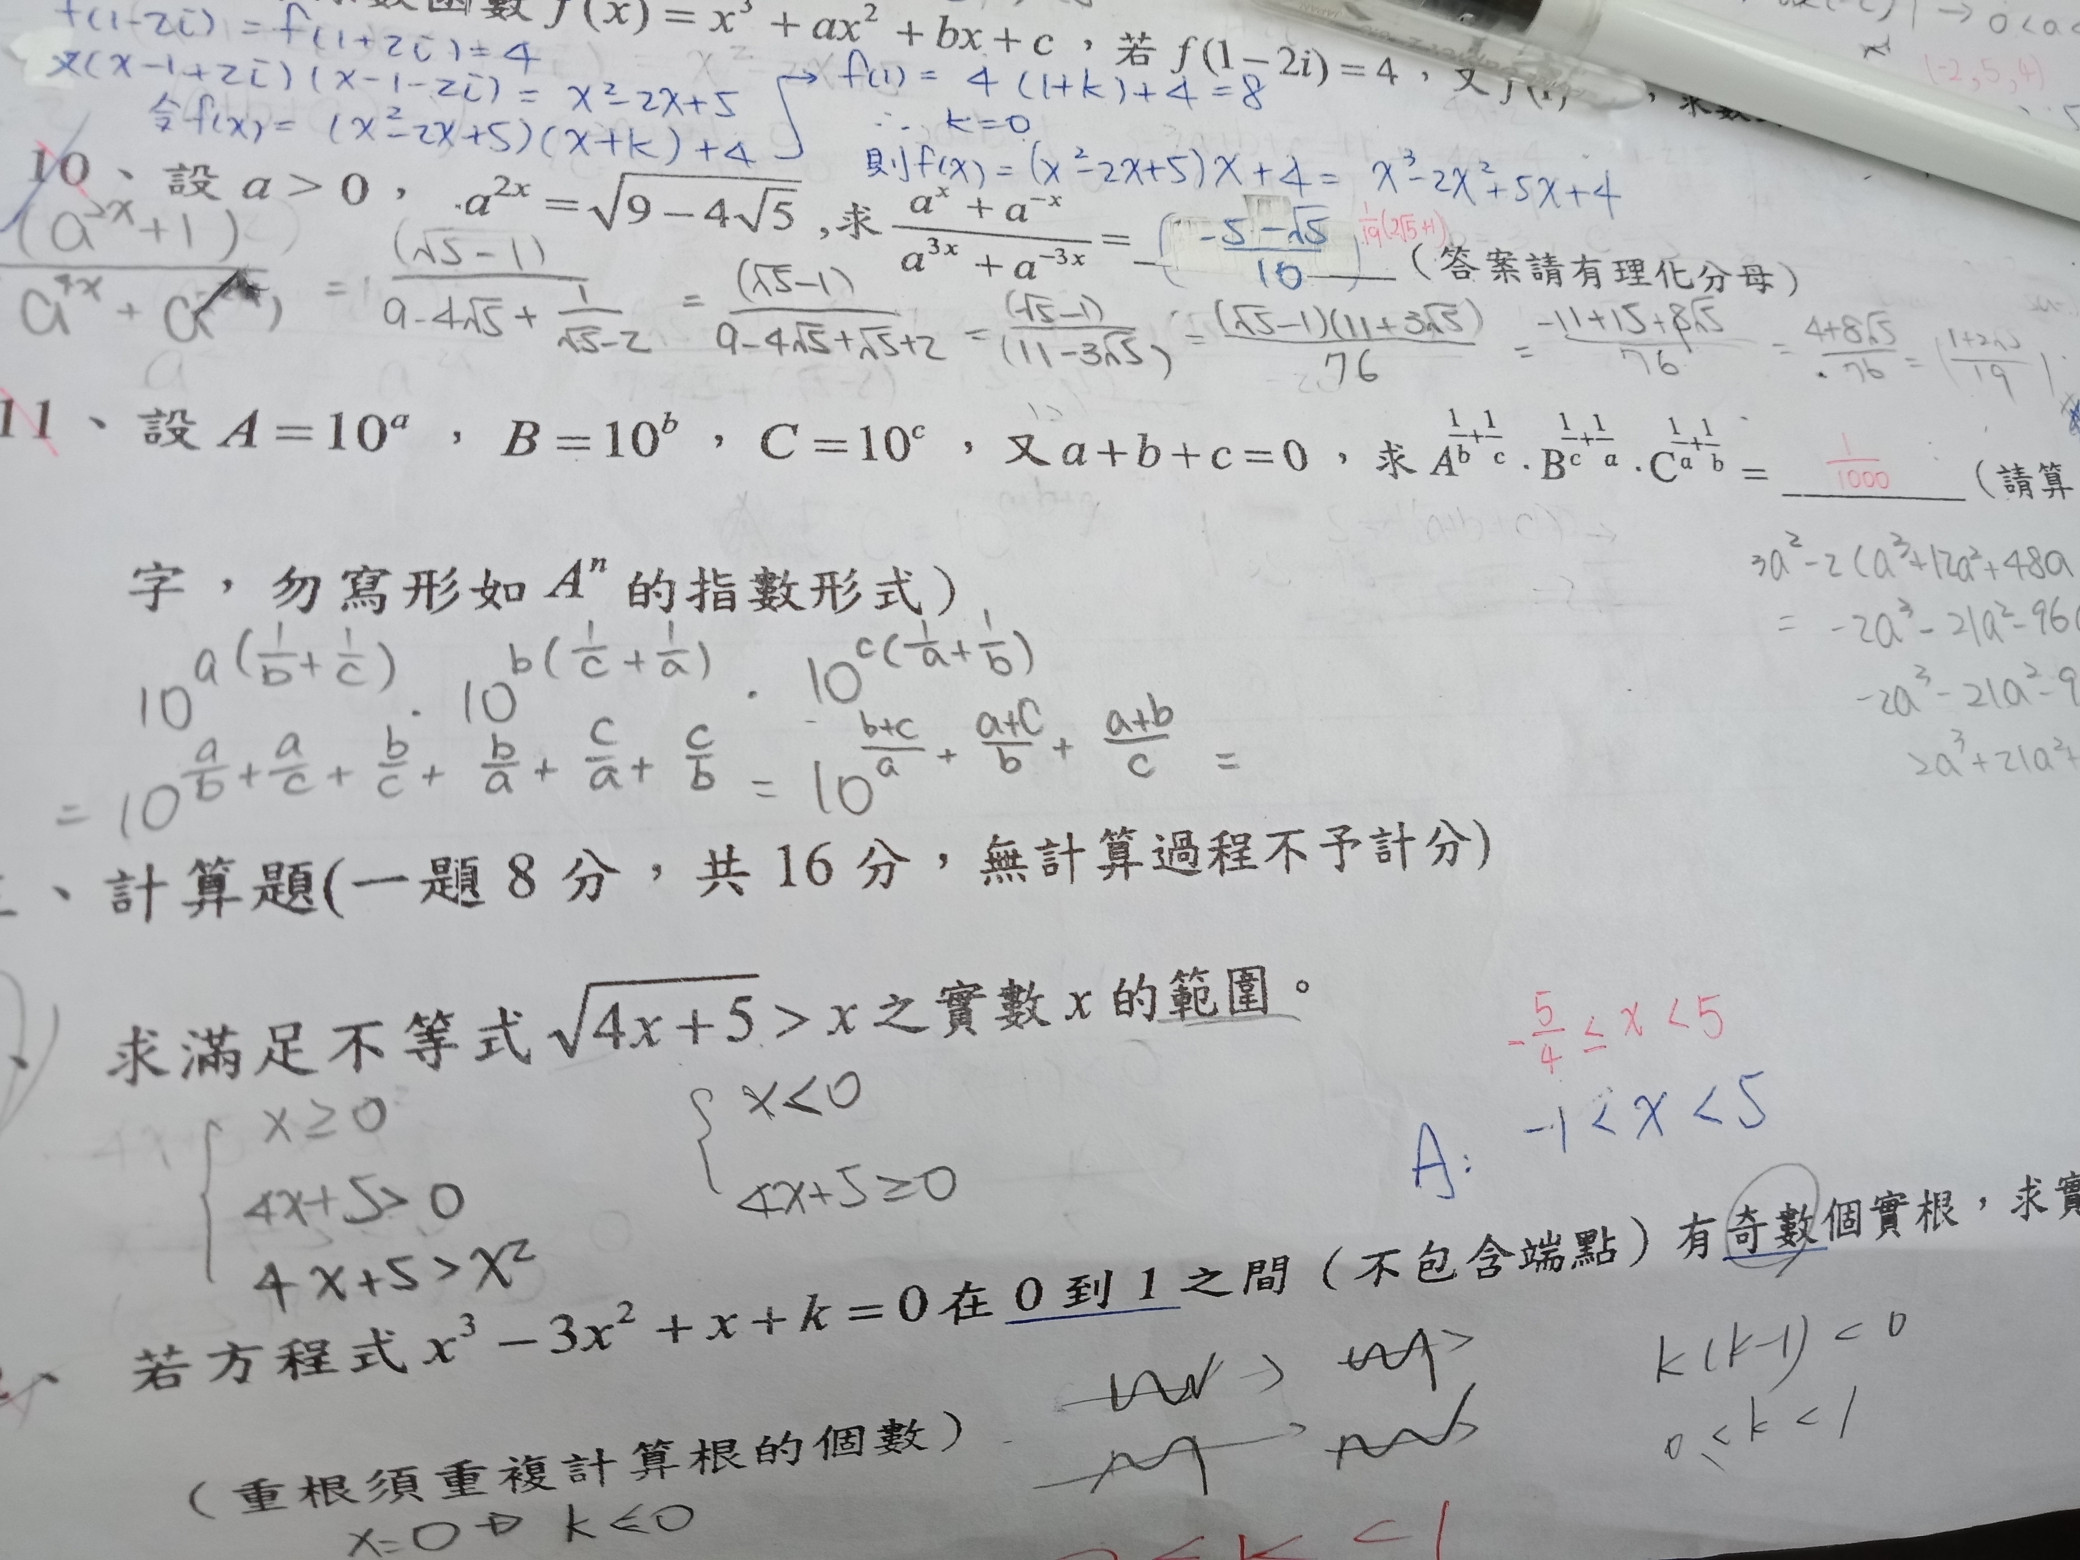 函數 f(x) = x³ + ax² + bx + c ，若 f(1−2i) = 4 ，又
f(1-2i) = f(1+2i) = 4
又(x-1+2i)(x-1-2i) = x²-2x+5
令f(x) = (x²-2x+5)(x+k)+4
f(1) = 4(1+k)+4 = 8
∴ k=0
則f(x) = (x²-2x+5)x+4 = x³-2x²+5x+4
(-2,5,4)
10、設 a > 0 ， a^{2x} = √(9 − 4√5) ,求 (a^x + a^{-x})/(a^{3x} + a^{-3x}) = (-5-√5)/10 1/19(2√5+1) （答案請有理化分母）
(a^{2x}+1)/(a^{4x}+a) = (√5-1)/(9-4√5+1/(√5-2)) = (√5-1)/(9-4√5+√5+2) = (√5-1)/(11-3√5) = (√5-1)(11+3√5)/76 = (-11+15+8√5)/76 = (4+8√5)/76 = (1+2√5)/19
11、設 A = 10^a ， B = 10^b ， C = 10^c ，又 a + b + c = 0 ，求 A^{1/b+1/c} · B^{1/c+1/a} · C^{1/a+1/b} = 1/1000 （請算
字，勿寫形如 A^n 的指數形式）
3a²-2(a³+12a²+48a
= -2a³-21a²-96
-2a³-21a²-9
2a³+21a²+
10^{a(1/b+1/c)} · 10^{b(1/c+1/a)} · 10^{c(1/a+1/b)}
= 10^{a/b+a/c+b/c+b/a+c/a+c/b} = 10^{(b+c)/a+(a+c)/b+(a+b)/c} =
、計算題(一題 8 分，共 16 分，無計算過程不予計分)
、求滿足不等式 √(4x+5) > x 之實數 x 的範圍。
-5/4 ≤ x < 5
x ≥ 0
4x+5 > 0
4x+5 > x²
x < 0
4x+5 ≥ 0
A: -1 < x < 5
、若方程式 x³ − 3x² + x + k = 0 在 0 到 1 之間（不包含端點）有奇數個實根，求實
k(k-1) < 0
0 < k < 1
（重根須重複計算根的個數）
x=0 → k≤0
< k < 1